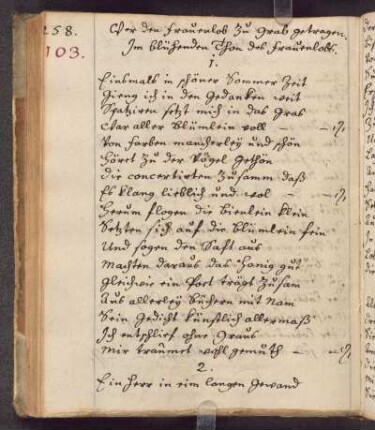 258.
103.
Wer den Frauenlob zu Grab getragen.
Im blühenden Thon des Frauenlobs.
1.
Einsmals in schöner Sommer Zeit
Gieng ich in den Gedanken weit
Spatziren setzt mich in das Gras
War aller Blümlein voll
Von Farben mancherley und schön
Höret zu der Vögel Gethön
die concertirten zusamm daß
Es klang lieblich und wol
Herum flogen die Bienlein klein
Setzten sich auf die Blümlein fein
Und sogen den Safft aus
Machten daraus das Honig gut
Gleichwie ein Poet trägt zusam
Aus allerley Büchern mit Nam
Sein Gedicht künstlich allermaß
Ich entschlief ohne Graus
Mir träumet wohlgemuth
2.
Ein Herr in eim langen Gewand